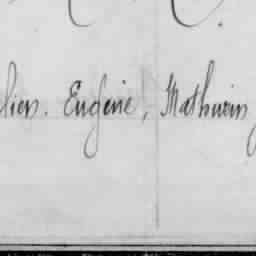 lien. Eugène, Mathurin